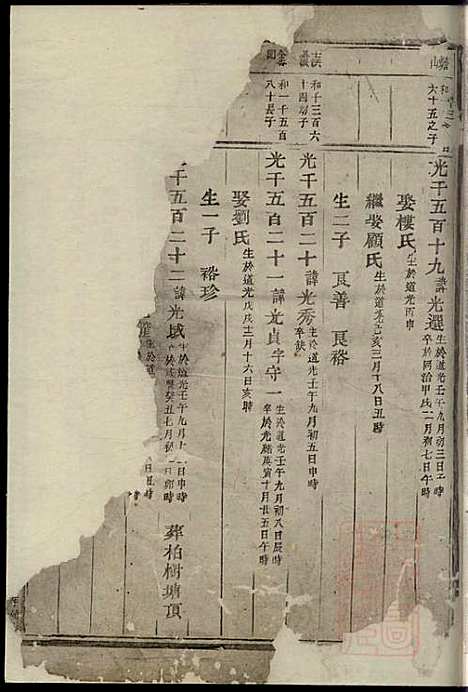 和千三百
六十五之子
光千五百十九 諱光選 生於道光壬午九月初三日子時
卒於同治甲戌二月初七日午時
娶樓氏 生於道光丙申
繼娶顧氏 生於道光己亥三月十八日丑時
生二子 良善 良裕
和千三百六
十四幼子
光千五百二十 諱光秀 生於道光壬午九月初五日申時
卒缺
和一千五百
八十長子
光千五百二十一 諱光貞字守一 生於道光壬午九月初八日辰時
卒於光緒庚寅十月廿五日午時
娶劉氏 生於道光戊戌十二月十六日亥時
卒
生一子 裕珍
千五百二十二 諱光域 生於道光壬午九月十 日申時
卒於咸豐癸丑七月初 日卯時 葬柏樹塘頂
生於道
日丑時